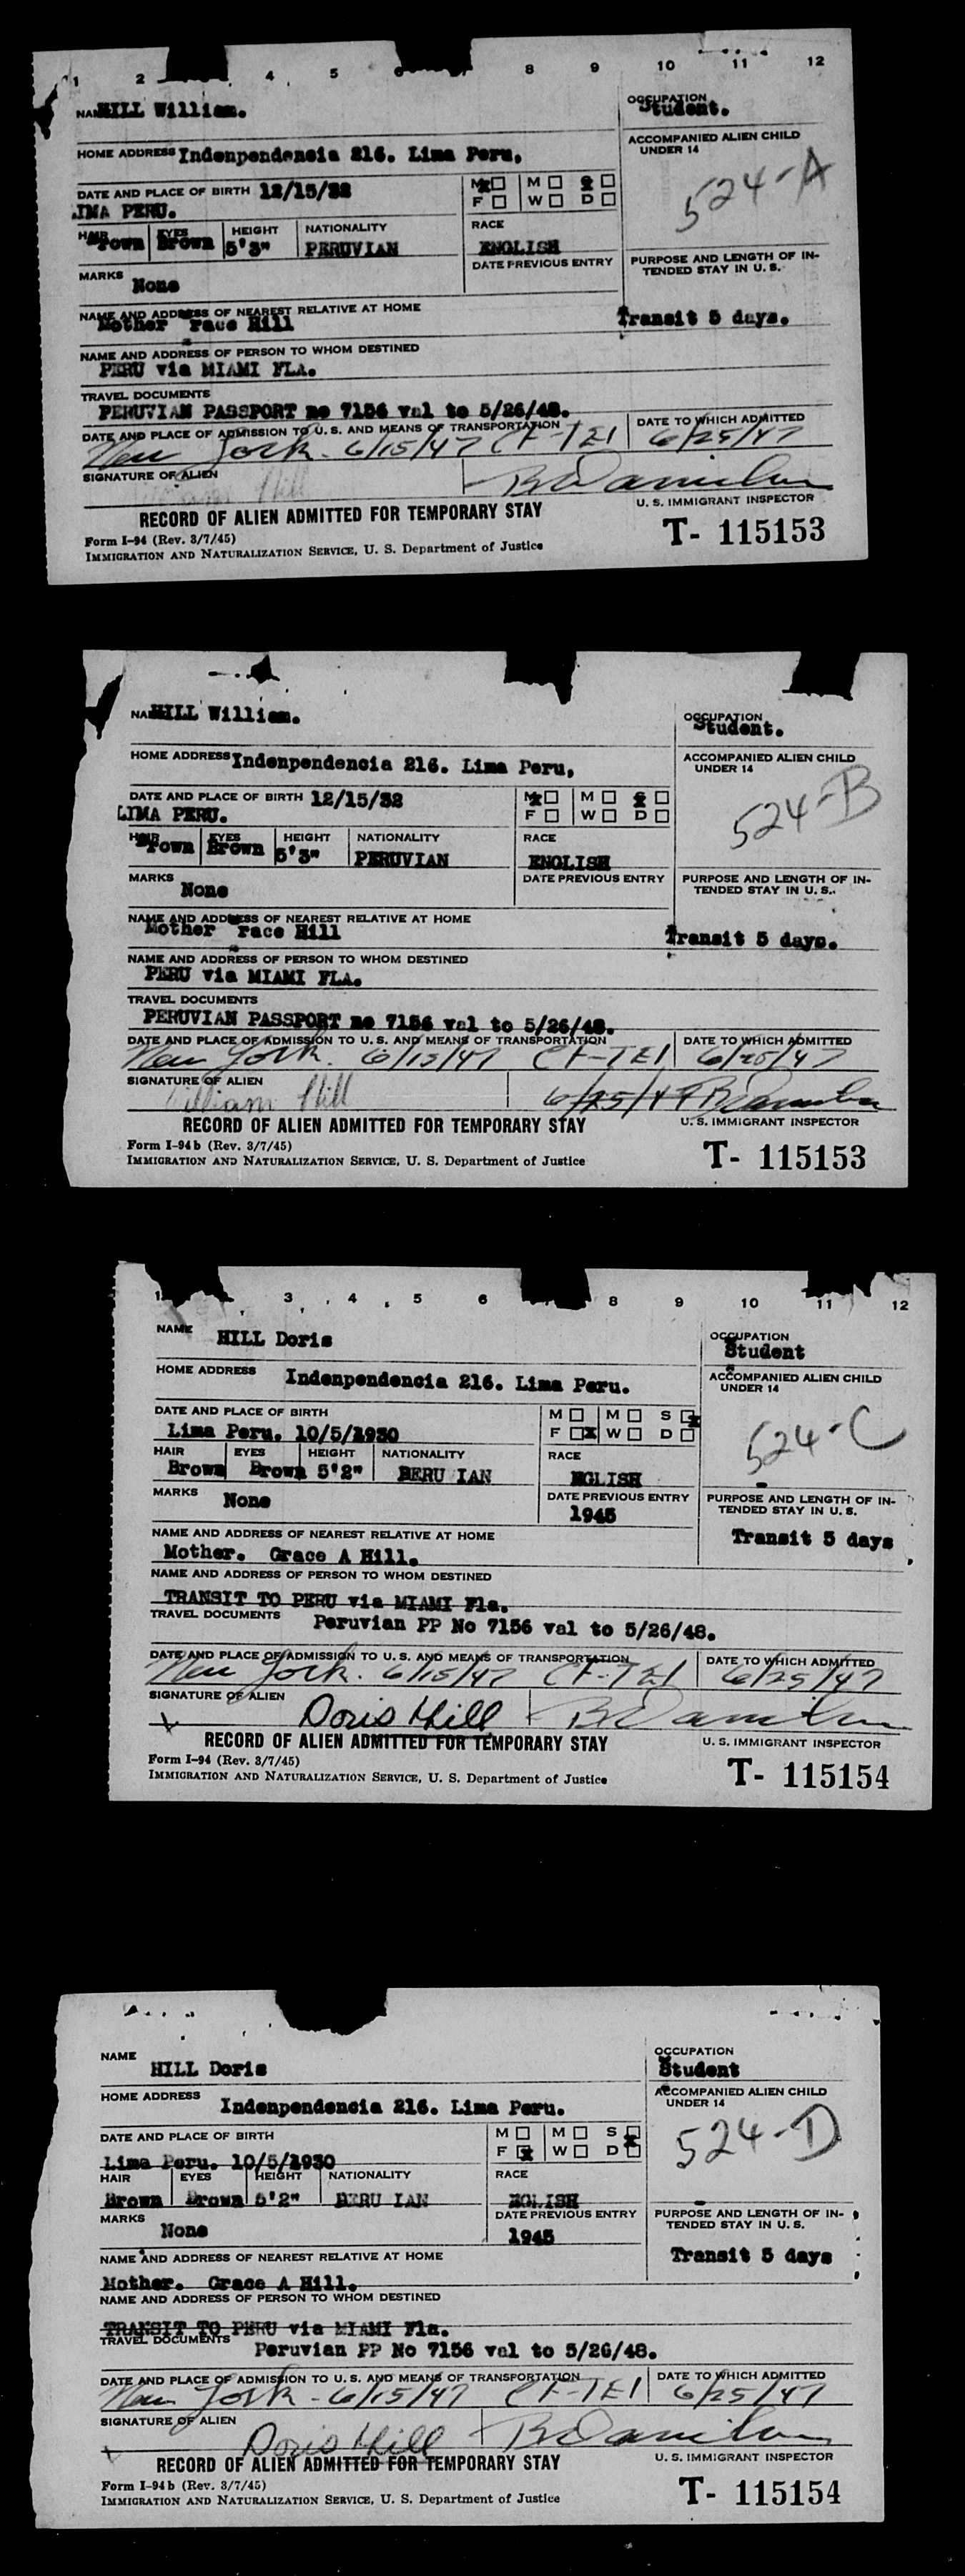 1 2 4 5 6 8 9 10 11 12
NAME HILL William.
OCCUPATION Student.
HOME ADDRESS Indenpendencia 216. Lima Peru,
ACCOMPANIED ALIEN CHILD UNDER 14
524-A
DATE AND PLACE OF BIRTH 12/15/32
LIMA PERU.
M M S
F W D
HAIR Brown EYES Brown HEIGHT 5'3" NATIONALITY PERUVIAN
RACE ENGLISH
MARKS None
DATE PREVIOUS ENTRY
PURPOSE AND LENGTH OF INTENDED STAY IN U. S.
Transit 5 days.
NAME AND ADDRESS OF NEAREST RELATIVE AT HOME
Mother race Hill
NAME AND ADDRESS OF PERSON TO WHOM DESTINED
PERU via MIAMI FLA.
TRAVEL DOCUMENTS
PERUVIAN PASSPORT no 7156 val to 5/26/48.
DATE AND PLACE OF ADMISSION TO U. S. AND MEANS OF TRANSPORTATION
New York. 6/15/47 CF-TEI
DATE TO WHICH ADMITTED
6/25/47
SIGNATURE OF ALIEN
Hill
U. S. IMMIGRANT INSPECTOR
RECORD OF ALIEN ADMITTED FOR TEMPORARY STAY
Form I-94 (Rev. 3/7/45)
IMMIGRATION AND NATURALIZATION SERVICE, U. S. Department of Justice
T- 115153
NAME HILL William.
OCCUPATION Student.
HOME ADDRESS Indenpendencia 216. Lima Peru,
ACCOMPANIED ALIEN CHILD UNDER 14
524-B
DATE AND PLACE OF BIRTH 12/15/32
LIMA PERU.
M M S
F W D
HAIR Brown EYES Brown HEIGHT 5'3" NATIONALITY PERUVIAN
RACE ENGLISH
MARKS None
DATE PREVIOUS ENTRY
PURPOSE AND LENGTH OF INTENDED STAY IN U. S.
Transit 5 days.
NAME AND ADDRESS OF NEAREST RELATIVE AT HOME
Mother race Hill
NAME AND ADDRESS OF PERSON TO WHOM DESTINED
PERU via MIAMI FLA.
TRAVEL DOCUMENTS
PERUVIAN PASSPORT no 7156 val to 5/26/48.
DATE AND PLACE OF ADMISSION TO U. S. AND MEANS OF TRANSPORTATION
New York. 6/15/47 CF-TEI
DATE TO WHICH ADMITTED
6/25/47
SIGNATURE OF ALIEN
William Hill
6/25/47
U. S. IMMIGRANT INSPECTOR
RECORD OF ALIEN ADMITTED FOR TEMPORARY STAY
Form I-94b (Rev. 3/7/45)
IMMIGRATION AND NATURALIZATION SERVICE, U. S. Department of Justice
T- 115153
1 3 4 5 6 8 9 10 11 12
NAME HILL Doris
OCCUPATION Student
HOME ADDRESS Indenpendencia 216. Lima Peru.
ACCOMPANIED ALIEN CHILD UNDER 14
524-C
DATE AND PLACE OF BIRTH
Lima Peru. 10/5/1930
M M S
F W D
HAIR Brown EYES Brown HEIGHT 5'2" NATIONALITY PERU IAN
RACE NGLISH
MARKS None
DATE PREVIOUS ENTRY
1945
PURPOSE AND LENGTH OF INTENDED STAY IN U. S.
Transit 5 days
NAME AND ADDRESS OF NEAREST RELATIVE AT HOME
Mother. Grace A Hill.
NAME AND ADDRESS OF PERSON TO WHOM DESTINED
TRANSIT TO PERU via MIAMI Fla.
TRAVEL DOCUMENTS Peruvian PP No 7156 val to 5/26/48.
DATE AND PLACE OF ADMISSION TO U. S. AND MEANS OF TRANSPORTATION
New York. 6/15/47 CF-TEI
DATE TO WHICH ADMITTED
6/25/47
SIGNATURE OF ALIEN
X Doris Hill
U. S. IMMIGRANT INSPECTOR
RECORD OF ALIEN ADMITTED FOR TEMPORARY STAY
Form I-94 (Rev. 3/7/45)
IMMIGRATION AND NATURALIZATION SERVICE, U. S. Department of Justice
T- 115154
NAME HILL Doris
OCCUPATION Student
HOME ADDRESS Indenpendencia 216. Lima Peru.
ACCOMPANIED ALIEN CHILD UNDER 14
524-D
DATE AND PLACE OF BIRTH
Lima Peru. 10/5/1930
M M S
F W D
HAIR Brown EYES Brown HEIGHT 5'2" NATIONALITY PERU IAN
RACE NGLISH
MARKS None
DATE PREVIOUS ENTRY
1945
PURPOSE AND LENGTH OF INTENDED STAY IN U. S.
Transit 5 days
NAME AND ADDRESS OF NEAREST RELATIVE AT HOME
Mother. Grace A Hill.
NAME AND ADDRESS OF PERSON TO WHOM DESTINED
TRANSIT TO PERU via MIAMI Fla.
TRAVEL DOCUMENTS Peruvian PP No 7156 val to 5/26/48.
DATE AND PLACE OF ADMISSION TO U. S. AND MEANS OF TRANSPORTATION
New York - 6/15/47 CF-TEI
DATE TO WHICH ADMITTED
6/25/47
SIGNATURE OF ALIEN
X Doris Hill
U. S. IMMIGRANT INSPECTOR
RECORD OF ALIEN ADMITTED FOR TEMPORARY STAY
Form I-94b (Rev. 3/7/45)
IMMIGRATION AND NATURALIZATION SERVICE, U. S. Department of Justice
T- 115154